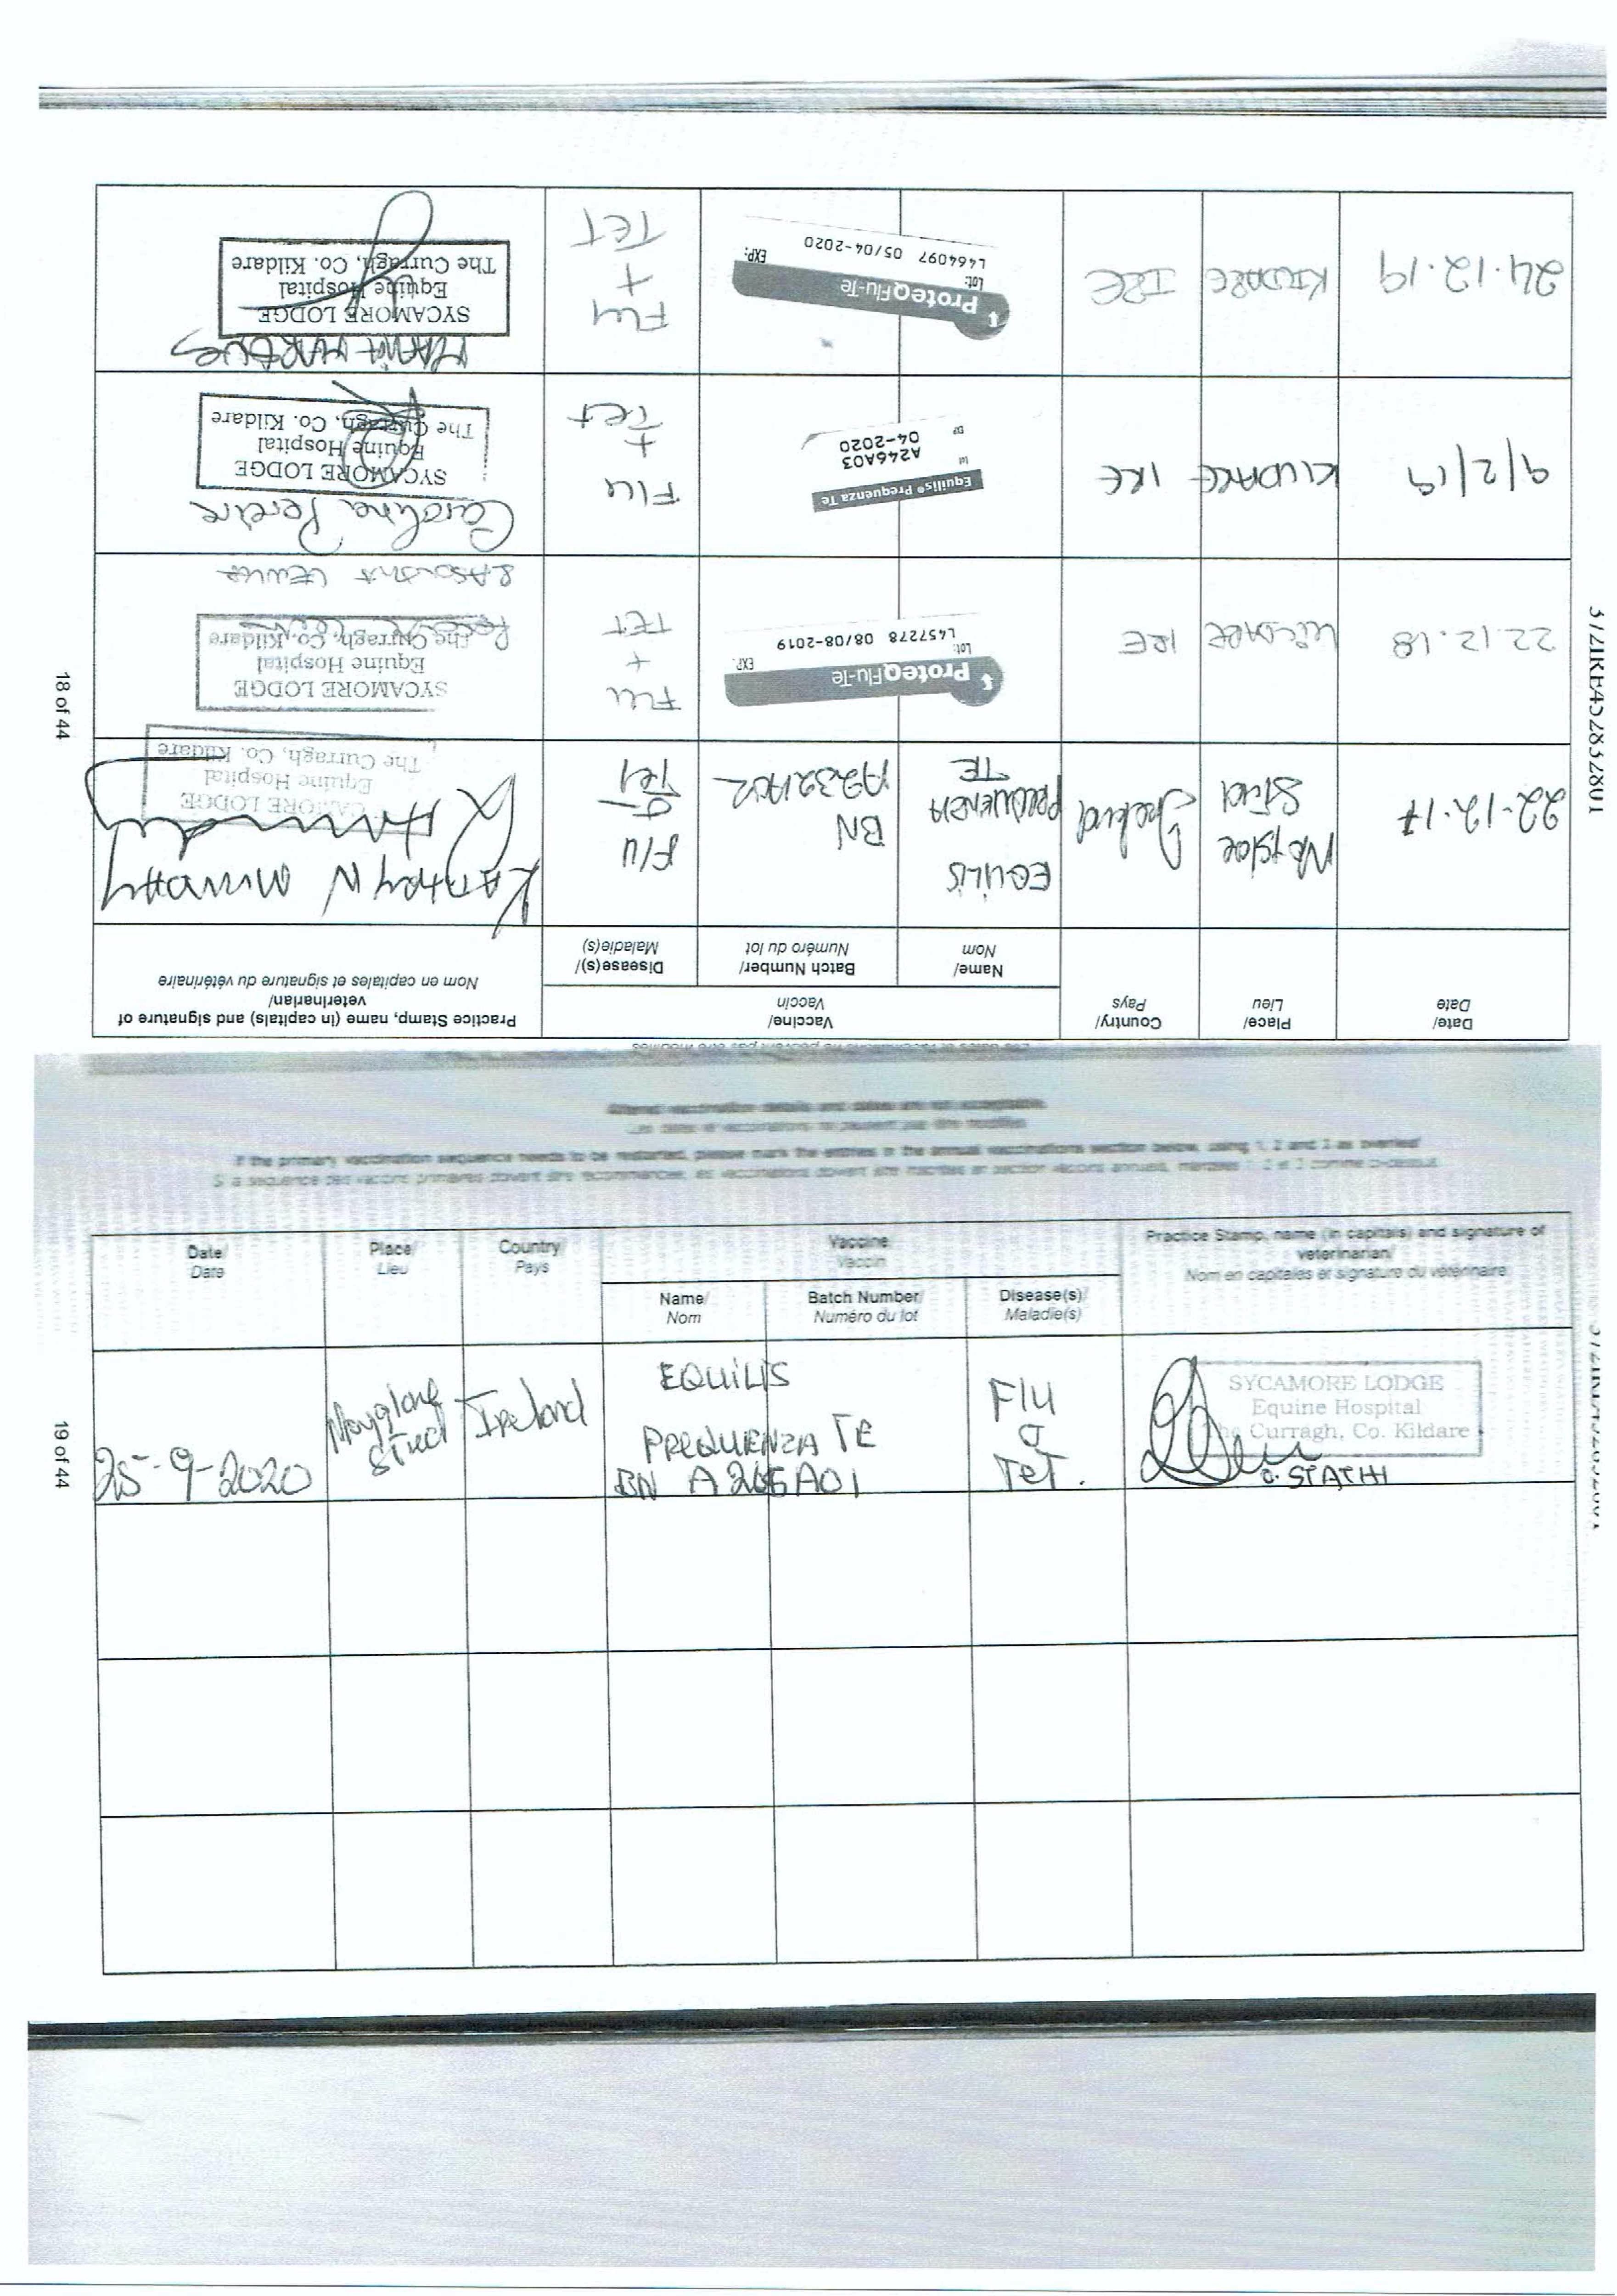 Date/
Date
Place/
Lieu
Country/
Pays
Vaccine/
Vaccin
Practice Stamp, name (in capitals) and signature of
veterinarian/
Nom en capitales et signature du vétérinaire
Name/
Nom
Batch Number/
Numéro du lot
Disease(s)/
Maladie(s)
22-12-17
Stud
Ireland
EQUILIS
PREQUENZA
TE
BN
A232A02
Flu
Tet
KATHRYN MURPHY
LODGE
Equine Hospital
The Curragh, Co. Kildare
22.12.18
KILDARE
IRE
ProteqFlu-Te
Lot:
EXP.
L457278 08/08-2019
FLU
+
TET
SYCAMORE LODGE
Equine Hospital
The Curragh, Co. Kildare
9/2/19
KILDARE
IRE
Equilis® Prequenza Te
lot
A246A03
04-2020
Flu
+
Tet
Carolina Pereira
SYCAMORE LODGE
Equine Hospital
The Curragh, Co. Kildare
24.12.19
KILDARE
IRE
ProteqFlu-Te
Lot:
EXP:
L464097 05/04-2020
Flu
+
TET
SYCAMORE LODGE
Equine Hospital
The Curragh, Co. Kildare
18 of 44
Altered vaccination details and dates are not acceptable.
Les dates et vaccinations ne peuvent pas être modifiés
If the primary vaccination sequence needs to be restarted, please mark the entries in the annual vaccinations section below, using 1, 2 and 3 as overleaf
Date/
Date
Place/
Lieu
Country/
Pays
Vaccine
Vaccin
Practice Stamp, name (in capitals) and signature of
veterinarian/
Nom en capitales et signature du vétérinaire
Name/
Nom
Batch Number/
Numéro du lot
Disease(s)/
Maladie(s)
25-9-2020
Moyglare
Stud
Ireland
EQUILIS
PREQUENZA TE
BN A266A01
Flu
Tet.
SYCAMORE LODGE
Equine Hospital
The Curragh, Co. Kildare
O. STATHI
19 of 44